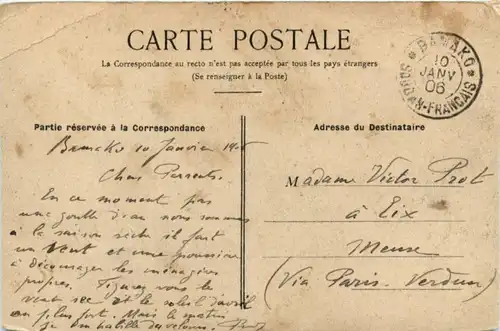 CARTE POSTALE
La Correspondance au recto n'est pas acceptée par tous les pays étrangers
(Se renseigner à la Poste)
BAMAKO
10
JANV
06
SOUDAN-FRANÇAIS
Partie réservée à la Correspondance
Adresse du Destinataire
Bamako 10 Janvier 1906
Chers Parents
En ce moment pas
une goutte d'eau nous sommes
à la saison sèche il fait
un vent et une poussière
à décourager les ménagères
propres. Figurez vous le
vent sec et le soleil d'avril
en plus fort. Mais le matin
je m'habille de velours.
Madame Victor Prot
à Eix
Meuse
(Via Paris-Verdun)